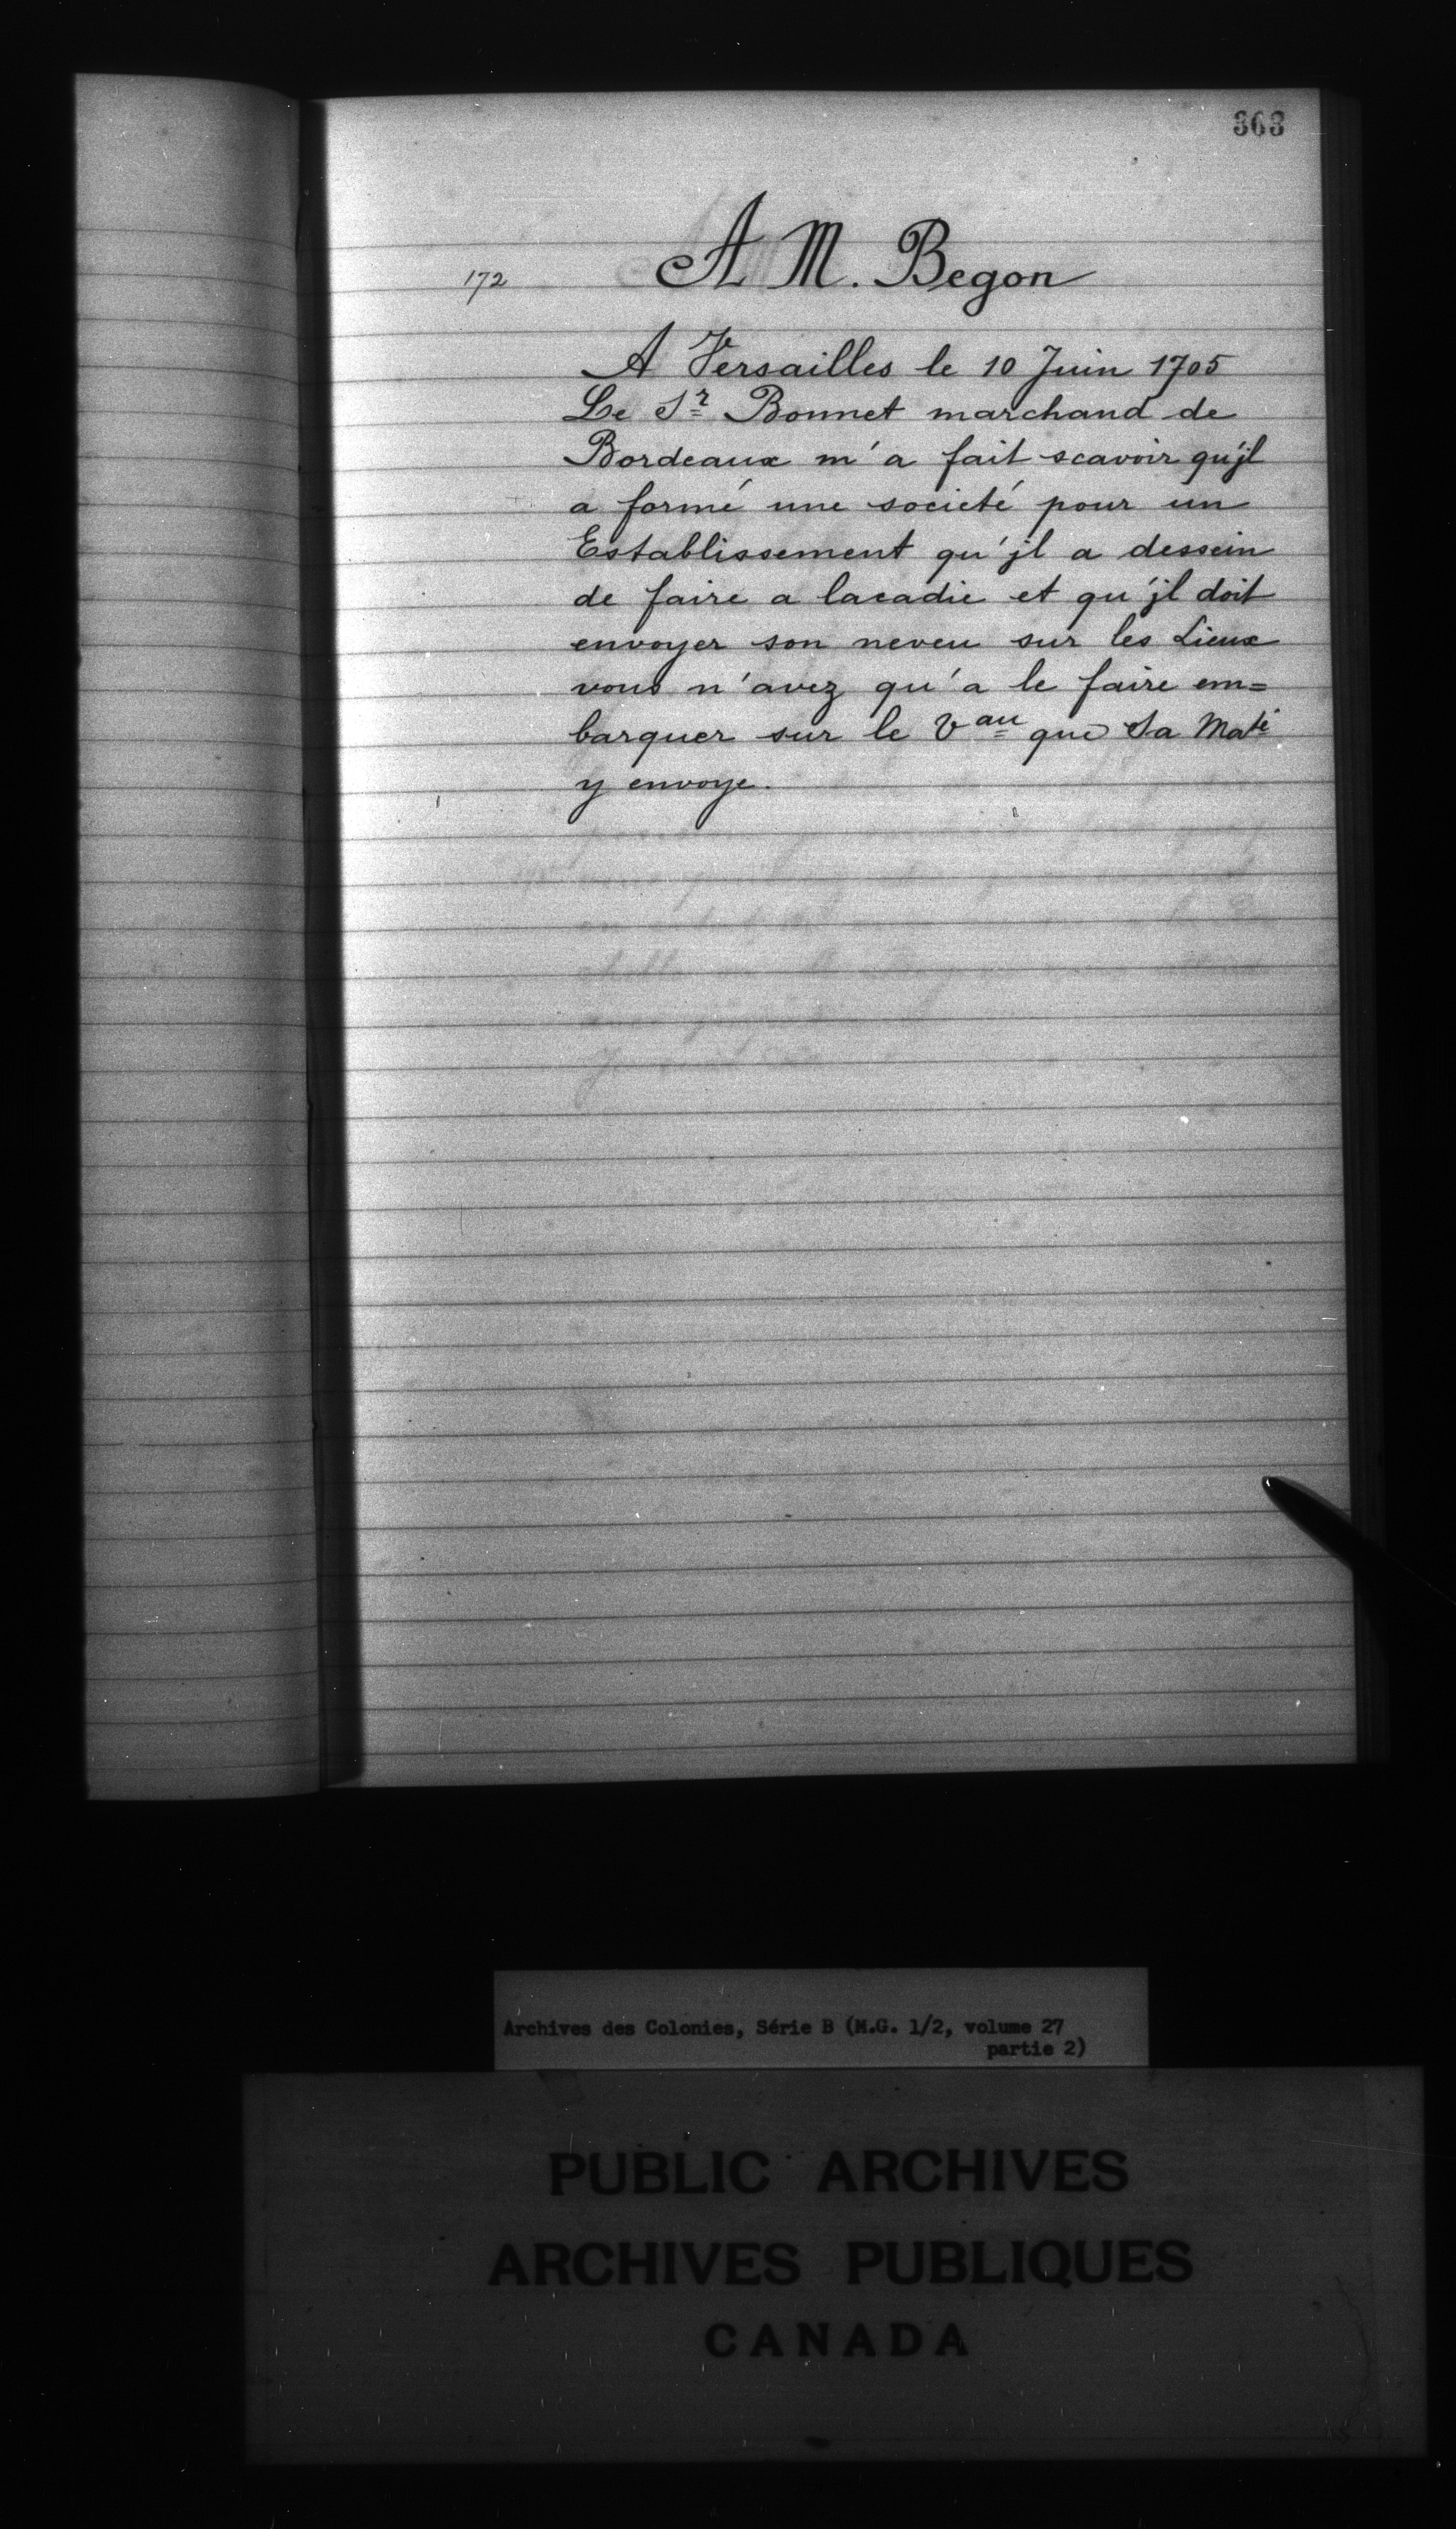 363
A M. Begon
172
A Versailles le 10 Juin 1705
Le Sr Bonnet marchand de
Bordeaux m'a fait scavoir qu'jl
a formé une societé pour un
Establissement qu'jl a dessein
de faire a lacadie et qu'jl doit
envoyer son neveu sur les Lieux
vous n'avez qu'a le faire em=
barquer sur le Vau que Sa Maté
y envoye.
Archives des Colonies, Série B (M.G. 1/2, volume 27
partie 2)
PUBLIC ARCHIVES
ARCHIVES PUBLIQUES
CANADA